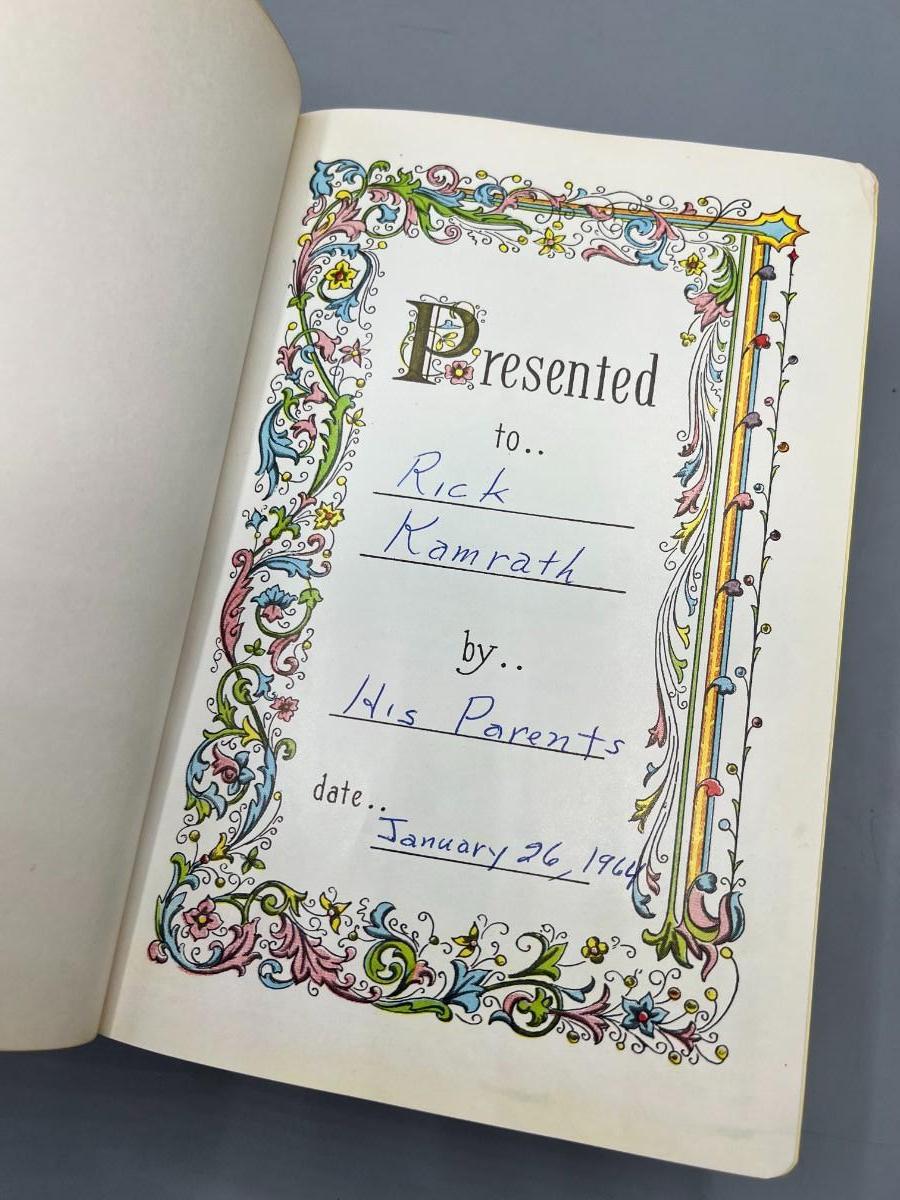 Presented
to..
Rick
Kamrath
by..
His Parents
date..
January 26, 1964